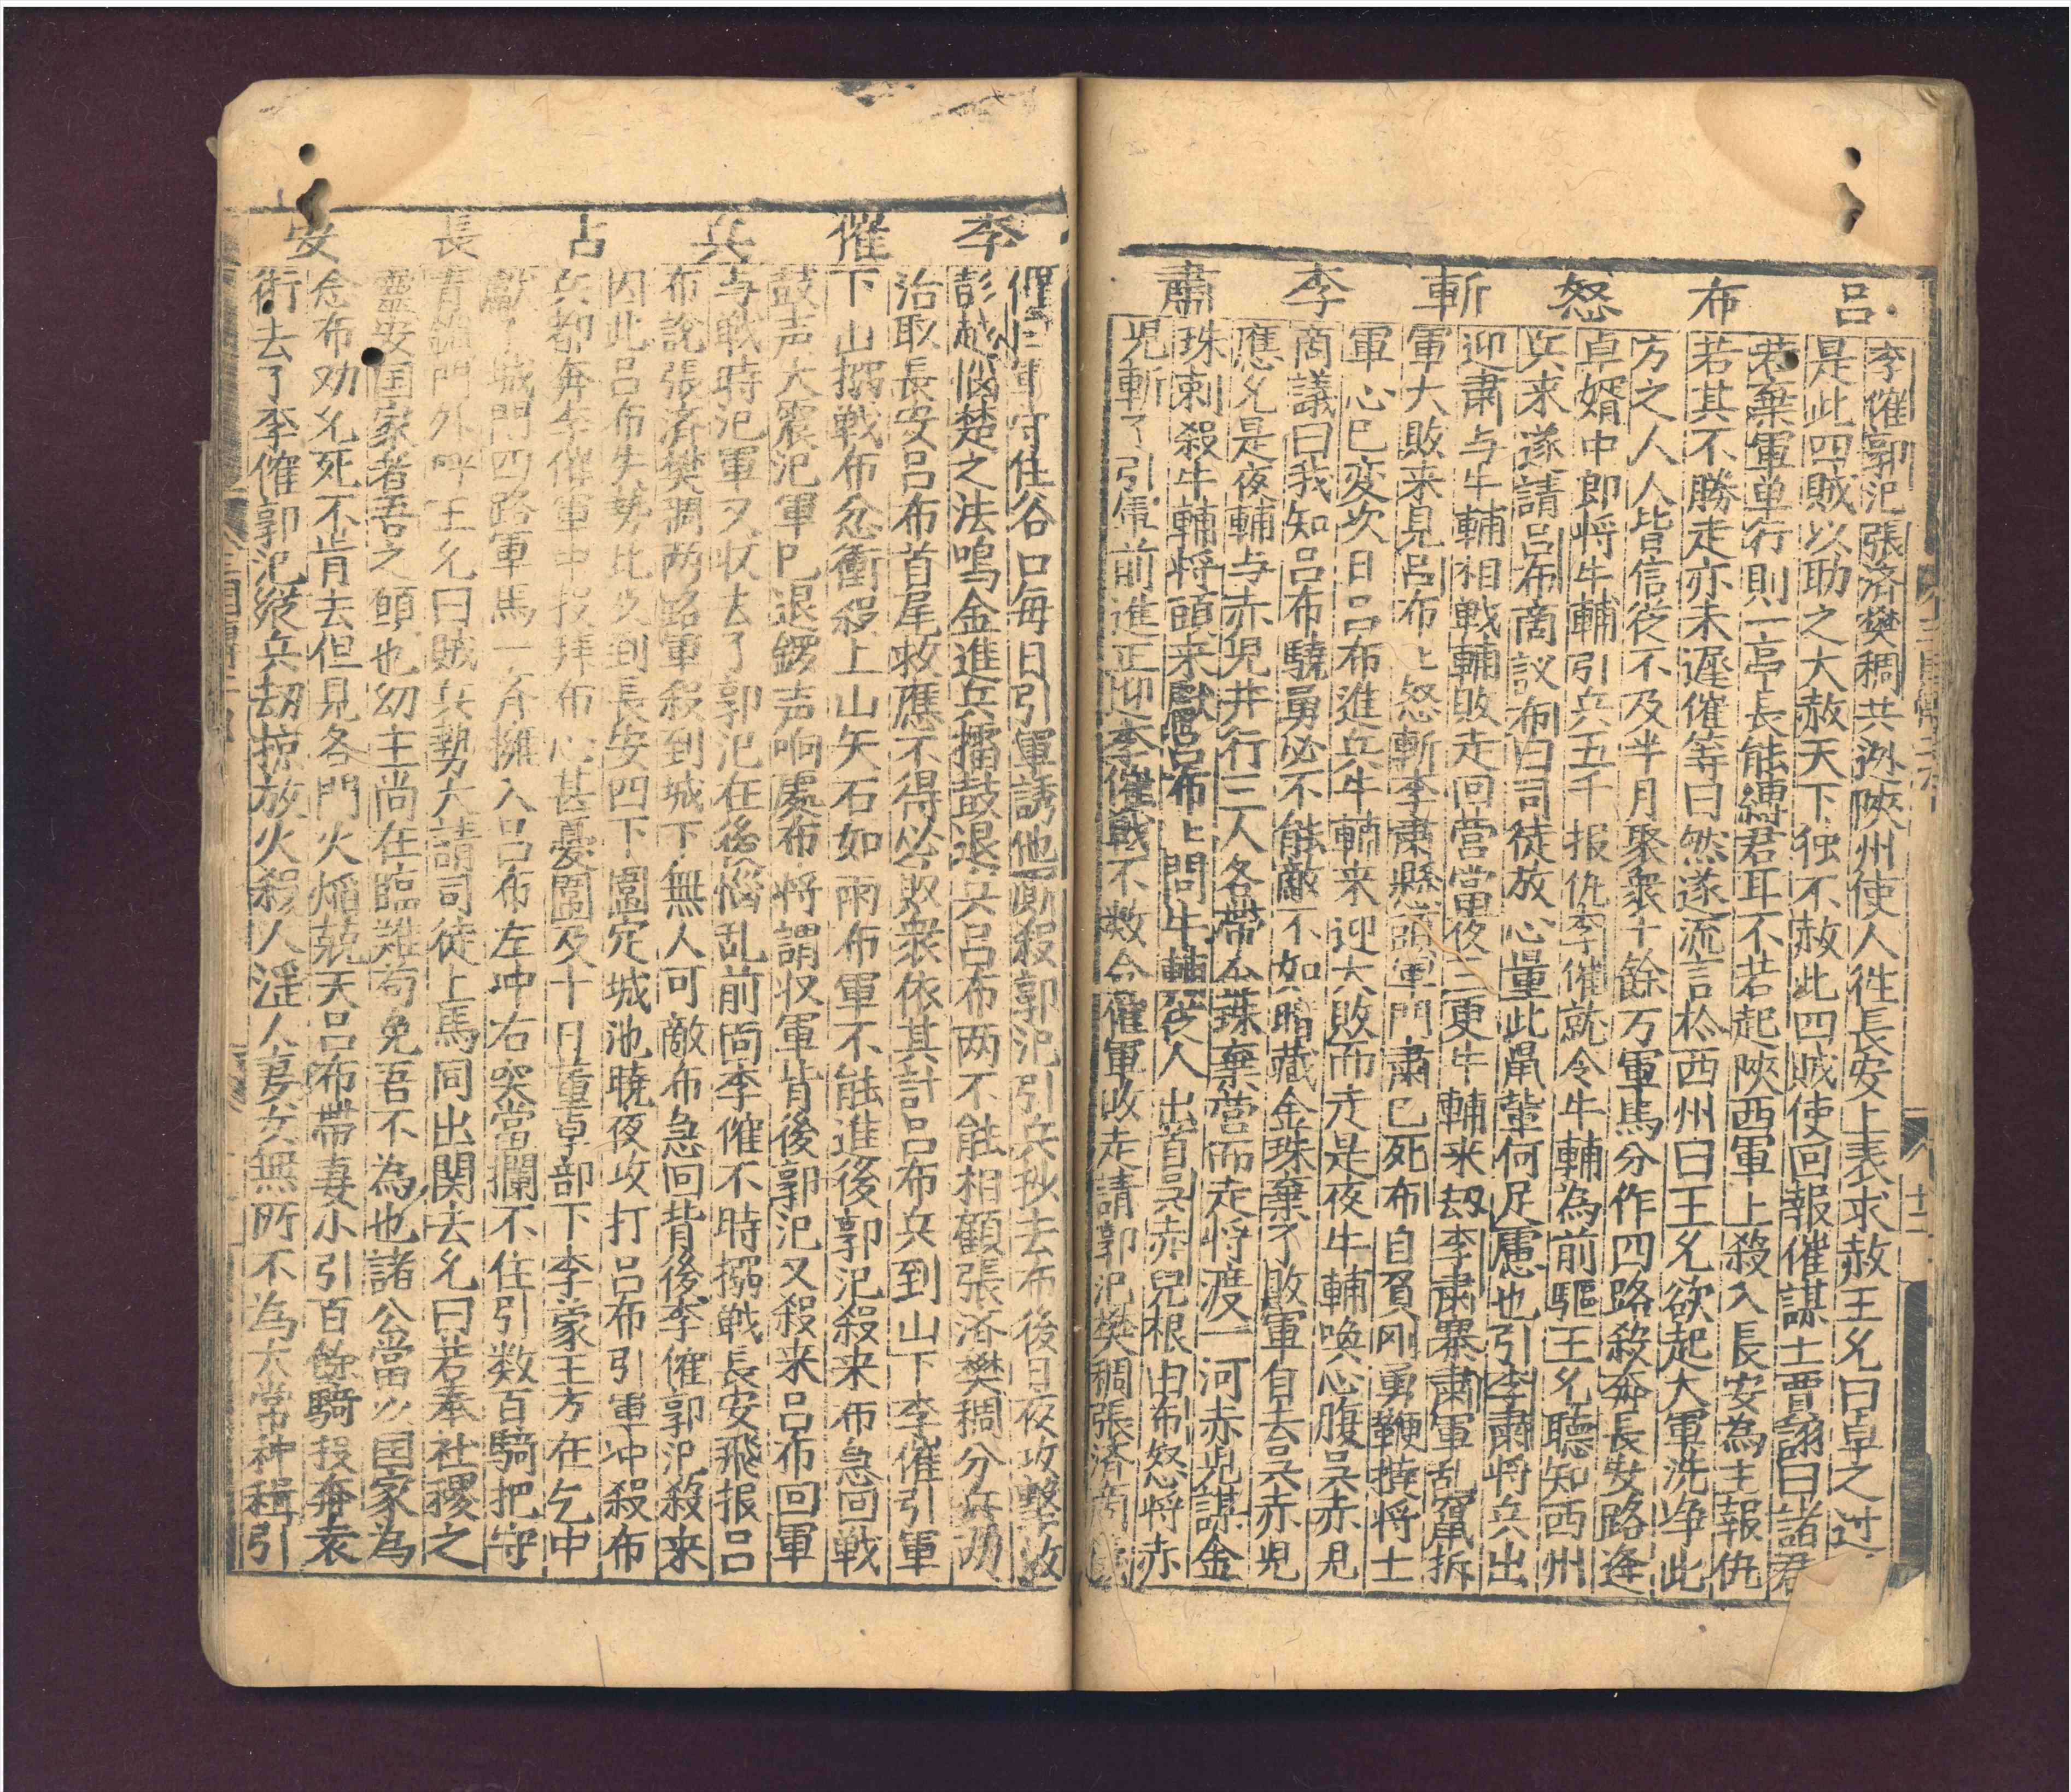 吕布怒斬李肅
李傕郭汜張济樊稠共逃陝州使人徃長安上表求赦王允曰卓之过
是此四賊以助之大赦天下独不赦此四賊使回報傕謀士賈詡曰諸君
若棄軍单行則一亭長能縛君耳不若起陝西軍上殺入長安為主報仇
若其不勝走亦未遲傕等曰然遂流言於西州曰王允欲起大軍洗净此
方之人人皆信從不及半月聚衆十餘万軍馬分作四路殺奔長安路逢
卓婿中郎将牛輔引兵五千报仇李傕就令牛輔為前驅王允聽知西州
兵来遂請吕布商议布曰司徒放心量此鼠輩何足慮也引李肅将兵出
迎肅与牛輔相戦輔敗走回营當夜三更牛輔来刼李肃寨肅軍乱竄折
軍大敗来見吕布上怒斬李肅懸頭軍門肅已死布自負刚勇鞭撻将士
軍心已变次日吕布進兵牛輔来迎大敗而走是夜牛輔喚心腹吴赤児
商議曰我知吕布驍勇必不能敵不如暗藏金珠棄了敗軍自去吴赤児
應允是夜輔与赤児并行三人各帶金珠棄营而走将渡一河赤児謀金
珠刺殺牛輔将頭来献吕布上問牛輔從人出首吴赤兒根由布怒将赤
児斬了引軍前進正迎李傕戰不数合傕軍敗走請郭汜樊稠張济商議
李傕兵占長安
傕曰軍守住谷口每日引軍誘他厮殺郭汜引兵抄去布後日夜攻擊效
彭越惱楚之法鳴金進兵擂鼓退兵吕布两不能相顧張济樊稠分兵刼
治取長安吕布首尾救應不得必敗衆依其計吕布兵到山下李傕引軍
下山搦戦布忿衝殺上山矢石如雨布軍不能進後郭汜殺来布急回戦
鼓声大震汜軍已退鑼声响處布将謂収軍背後郭汜又殺来吕布回軍
与戦時汜軍又収去了郭汜在後惱乱前面李傕不時搦戦長安飛报吕
布說张济樊稠两路軍殺到城下無人可敵布急回背後李傕郭汜殺来
因此吕布失势比及到長安四下圍定城池曉夜攻打吕布引軍冲殺布
兵都奔李傕軍中投拜布心甚憂圍及十日董卓部下李蒙王方在乞中
献了城門四路軍馬一斉擁入吕布左冲右突當攔不住引数百騎把守
青鎖門外呼王允曰賊兵勢大請司徒上馬同出関去允曰若奉社稷之
靈安国家者吾之願也幼主尚在臨難苟免吾不為也諸公當以国家為
念布劝允死不肯去但見各門火焰竟天吕布帶妻小引百餘騎投奔袁
術去了李傕郭汜縱兵刼掠放火殺人淫人妻女無所不為太常种稱引